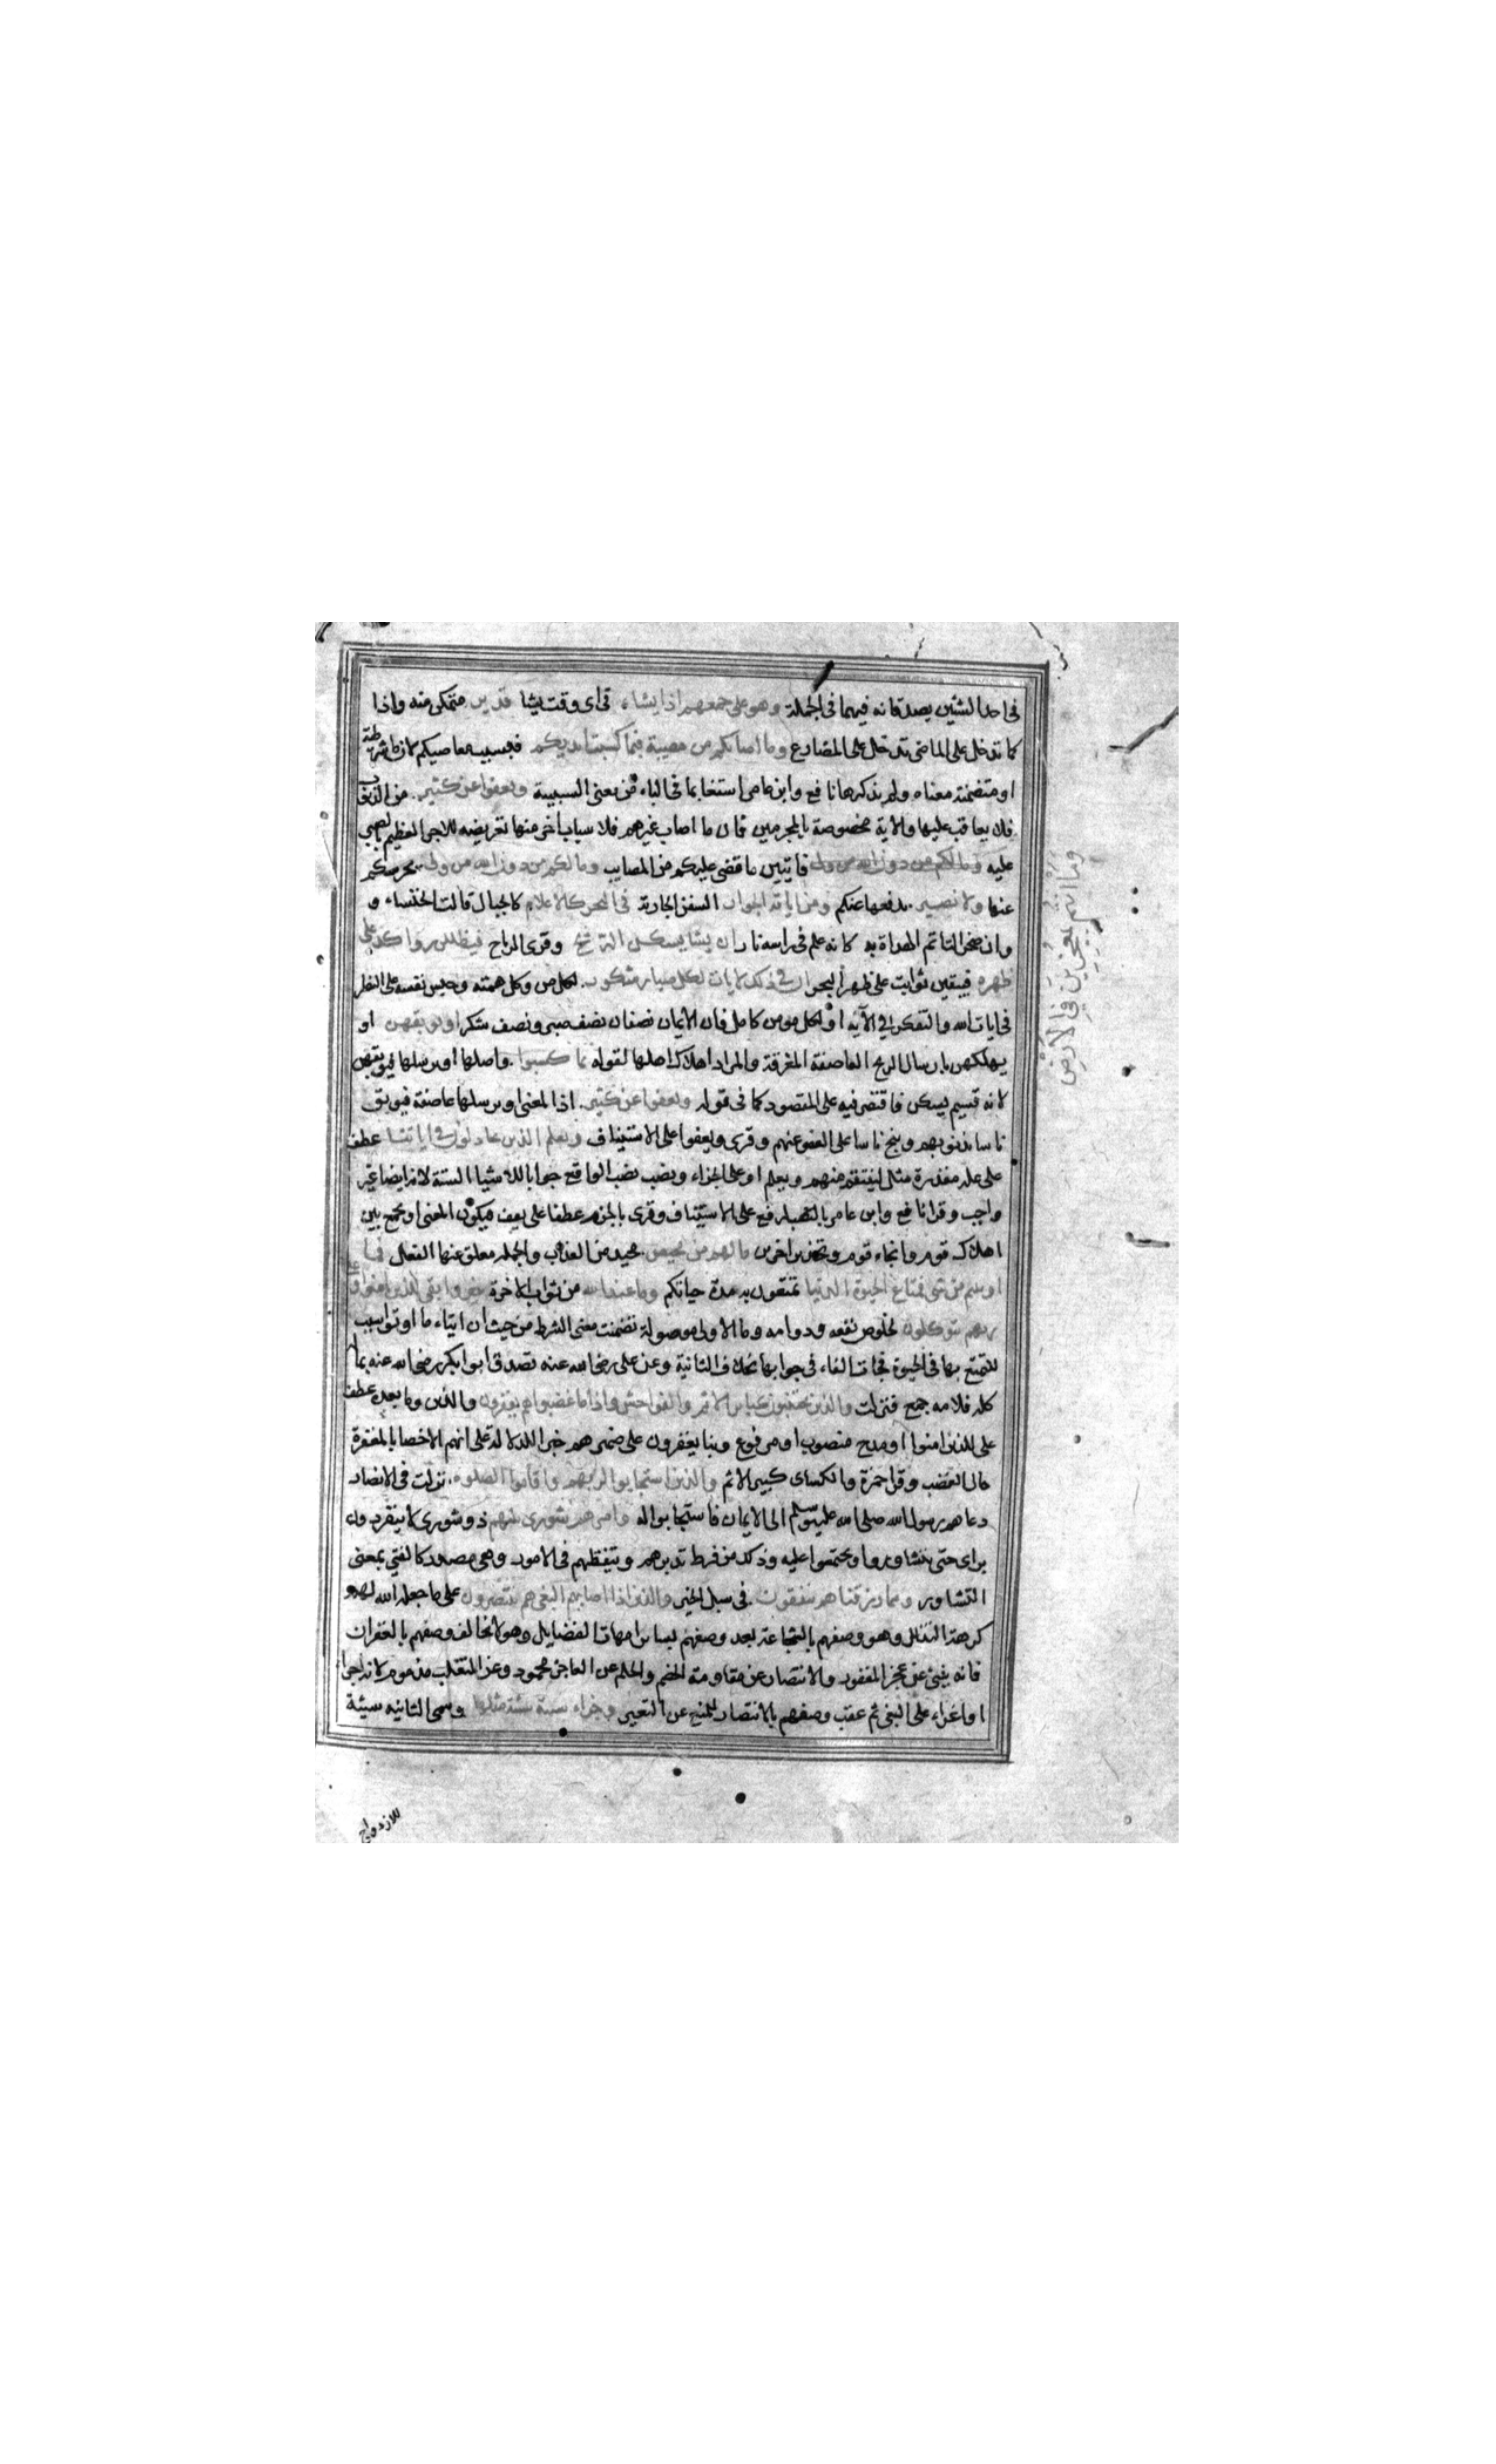 فى احد الشئين يصدق انه فيهما فى الجملة وهو على جمعهم اذا يشاء فى اى وقت يشا قدير متمكن منه واذا
كما تدخل على الماضى تدخل على المضارع وما اصابكم من مصيبة فبما كسبت ايديكم فبسبب معاصيكم لان ما شرطية
او متضمنة معناه ولم يذكرها نافع وابن عامر استغنا بما فى الباء من معنى السببية ويعفوا عن كثير من الذنوب
فلا يعاقب عليها والاية مخصوصة بالمجرمين فان ما اصاب غيرهم فلاسباب اخر منها تعريضه للاجر العظيم بالصبر
عليه وما لكم من دون الله من ولى فايتين ما قضى عليكم من المصايب وما لكم من دون الله من ولى يحرسكم
عنها ولا نصير يدفعها عنكم ومن اياته الجوار السفن الجارية فى البحر كالاعلام كالجبال قالت الخنساء و
وان صخرا لتاتم الهداة به كانه علم فى راسه نار ان يشا يسكن الريح وقرى الرياح فيظللن رواكد على
ظهره فيبقين ثوابت على ظهر البحر ان فى ذلك لايات لكل صبار شكور لكل من وكل همته وحبس نفسه على النظر
فى ايات الله والتفكر فى الآيه او لكل مومن كامل فان الايمان نصفان نصف صبر ونصف شكر او يوبقهن او
يهلكهن بارسال الريح العاصفة المغرقة والمراد اهلاك اهلها لقوله بما كسبوا واصلها او يرسلها فيوبقهن
لانه قسيم يسكن فاقتصر فيه على المقصود كما فى قوله ويعفوا عن كثير اذ المعنى او يرسلها عاصفة فيوبق
ناسا بذنوبهم وينج ناسا على العفو عنهم وقرى ويعفوا على الاستيناف ويعلم الذين يجادلون فى اياتنا عطف
على علة مقدرة مثل لينتقم منهم ويعلم او على الجزاء ونصب نصب الواقع جوابا للاشيا الستة لانه ايضا غير
واجب وقرا نافع وابن عامر بالرفع على الاستيناف وقرى بالجزم عطفا على يعف فيكون المعنى او يجمع بين
اهلاك قوم وانجاء قوم وتحذير اخرين ما لهم من محيص محيد من العذاب والجمله معلق عنها الفعل فما
اوتيتم من شى فمتاع الحيوة الدنيا تمتعون به مدة حياتكم وما عند الله من ثواب الاخرة خير وابقى للذين امنوا وعلى
ربهم يتوكلون لخلوص نفعه ودوامه وما الاولى موصولة تضمنت معنى الشرط من حيث ان ايتاء ما اوتوا سبب
للتمتع بها فى الحيوة فجات الفاء فى جوابها بخلاف الثانية وعن على رضى الله عنه تصدق ابو بكر رضى الله عنه بماله
كله فلامه جمع فنزلت والذين يجتنبون كبائر الاثم والفواحش واذا ما غضبوا هم يغفرون والذين وما بعده عطف
على للذين امنوا او مدح منصوب او مرفوع وبنا يغفرون على ضميرهم خبرا للدلالة على انهم الاخصا بالمغفرة
حال الغضب وقرا حمزة والكساى كبير الاثم والذين استجابوا لربهم واقاموا الصلوه نزلت فى الانصار
دعاهم رسول الله صلى الله عليه وسلم الى الايمان فاستجابوا له وامرهم شورى بينهم ذو شورى لا ينفردون
براى حتى يتشاوروا ويجتمعوا عليه وذلك من فرط تدبرهم وتيقظهم فى الامور وهى مصدر كالفتى بمعنى
التشاور ومما رزقناهم ينفقون فى سبل الخير والذين اذا اصابهم البغى هم ينتصرون على ما جعله الله لهم
كرهة التذلل وهو وصفهم بالشجاعة بعد وصفهم بسائر امهات الفضايل وهو لا يخالف وصفهم بالغفران
فانه ينبئ عن عجز المغفور والانتصار عن مقاومة الخصم والحلم عن العاجز محمود وعن المتغلب مذموم لانه اجرا
او اغراء على البغى ثم عقب وصفهم بالانتصار للمنع عن التعدى وجزاء سيئة سيئة مثلها وسمى الثانيه سيئة
للازدواج
وما انتم بمعجزين في الارض